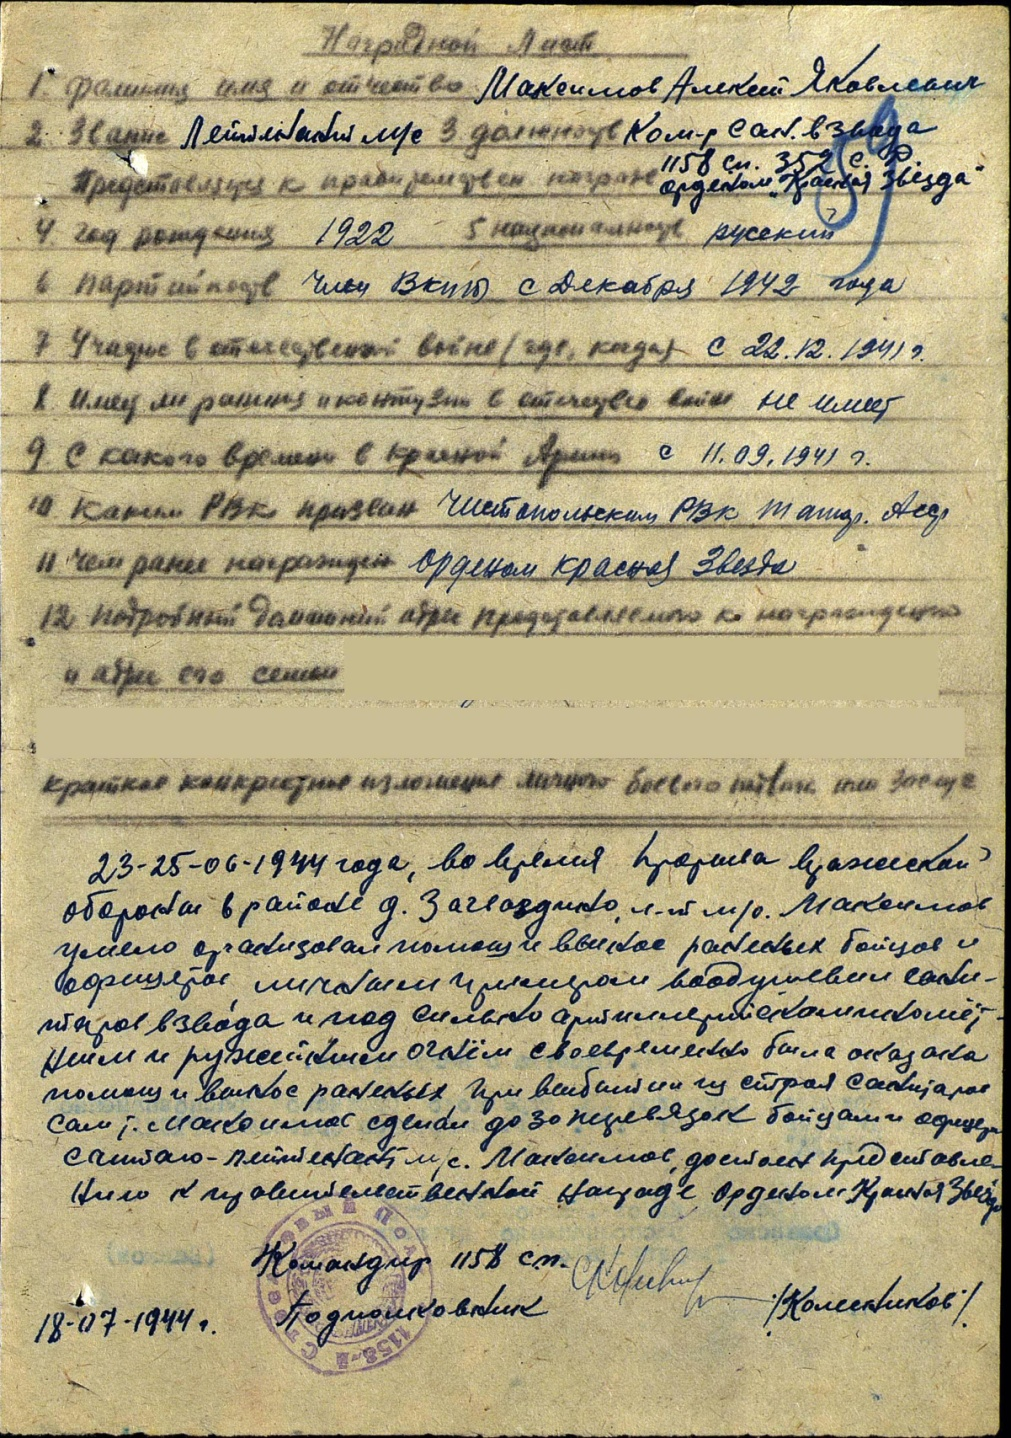 Наградной Лист
1. Фамилия имя и отчество Максимов Алексей Яковлевич
2. Звание Лейтенант м/с 3 должность Ком-р сан. взвода
1158 сп. 352 с.д.
Представляется к правительствен награде орденом „Красная Звезда"
59
4 год рождения 1922 5 национальность русский
6 партийность член ВКП(б) с Декабря 1942 года
7 Участие в отечественной войне (где, когда) с 22.12.1941 г.
8 Имеет ли ранения и контузии в отечеств войне не имеет
9. С какого времени в красной Армии с 11.09.1941 г.
10 Каким РВК призван Чистопольским РВК Татар. Асср
11 Чем ранее награжден Орденом Красная Звезда
12 подробный домашний адрес представляемого к награждению
и адрес его семьи
Краткое конкретное изложение личного боевого подвига или заслуг
23-25-06-1944 года, во время прорыва вражеской
обороны в районе д. Загваздино, л-нт м/с. Максимов
умело организовал помощь и вынос раненых бойцов и
офицеров, личным примером воодушевил сани-
таров взвода и под сильно артиллерийским миномёт-
ным и ружейным огнём своевременно была оказана
помощь и вынос раненых при выбытии из строя санитаров
сам т. Максимов сделал до 30 перевязок бойцам и офицерам
Считаю - лейтенант м/с. Максимов, достоин представле-
нию к правительственной награде Орденом Красная Звезда
Командир 1158 сп.
Подполковник /Колесников/
18-07-1944 г.
1158-й Стрелковый Полк